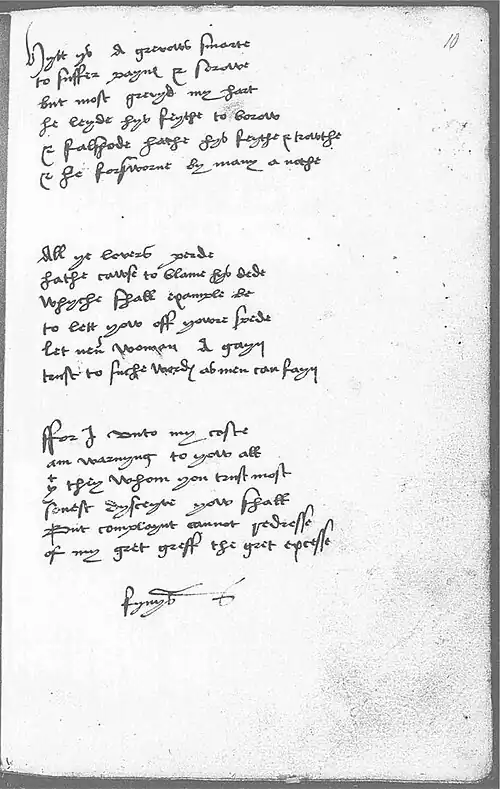 10
Hytt ys A grevows smarte
to suffer payne & sorowe
but most grevyd my hart
he leyde hys feythe to borow
& falshode hathe hys feythe & trowthe
& he forsworne by many a nothe
All ye lovers perde
hathe cawse to blame hys dede
whyche shall example be
to lett yow off yowre spede
let neu woman A gayn
trust to suche words as men can fayn
ffor I unto my coste
am warnyng to yow all
yt they whom you trust most
sonest dysceyve yow shall
But complaynt cannot redresse
of my gret greff the gret excesse
fynys